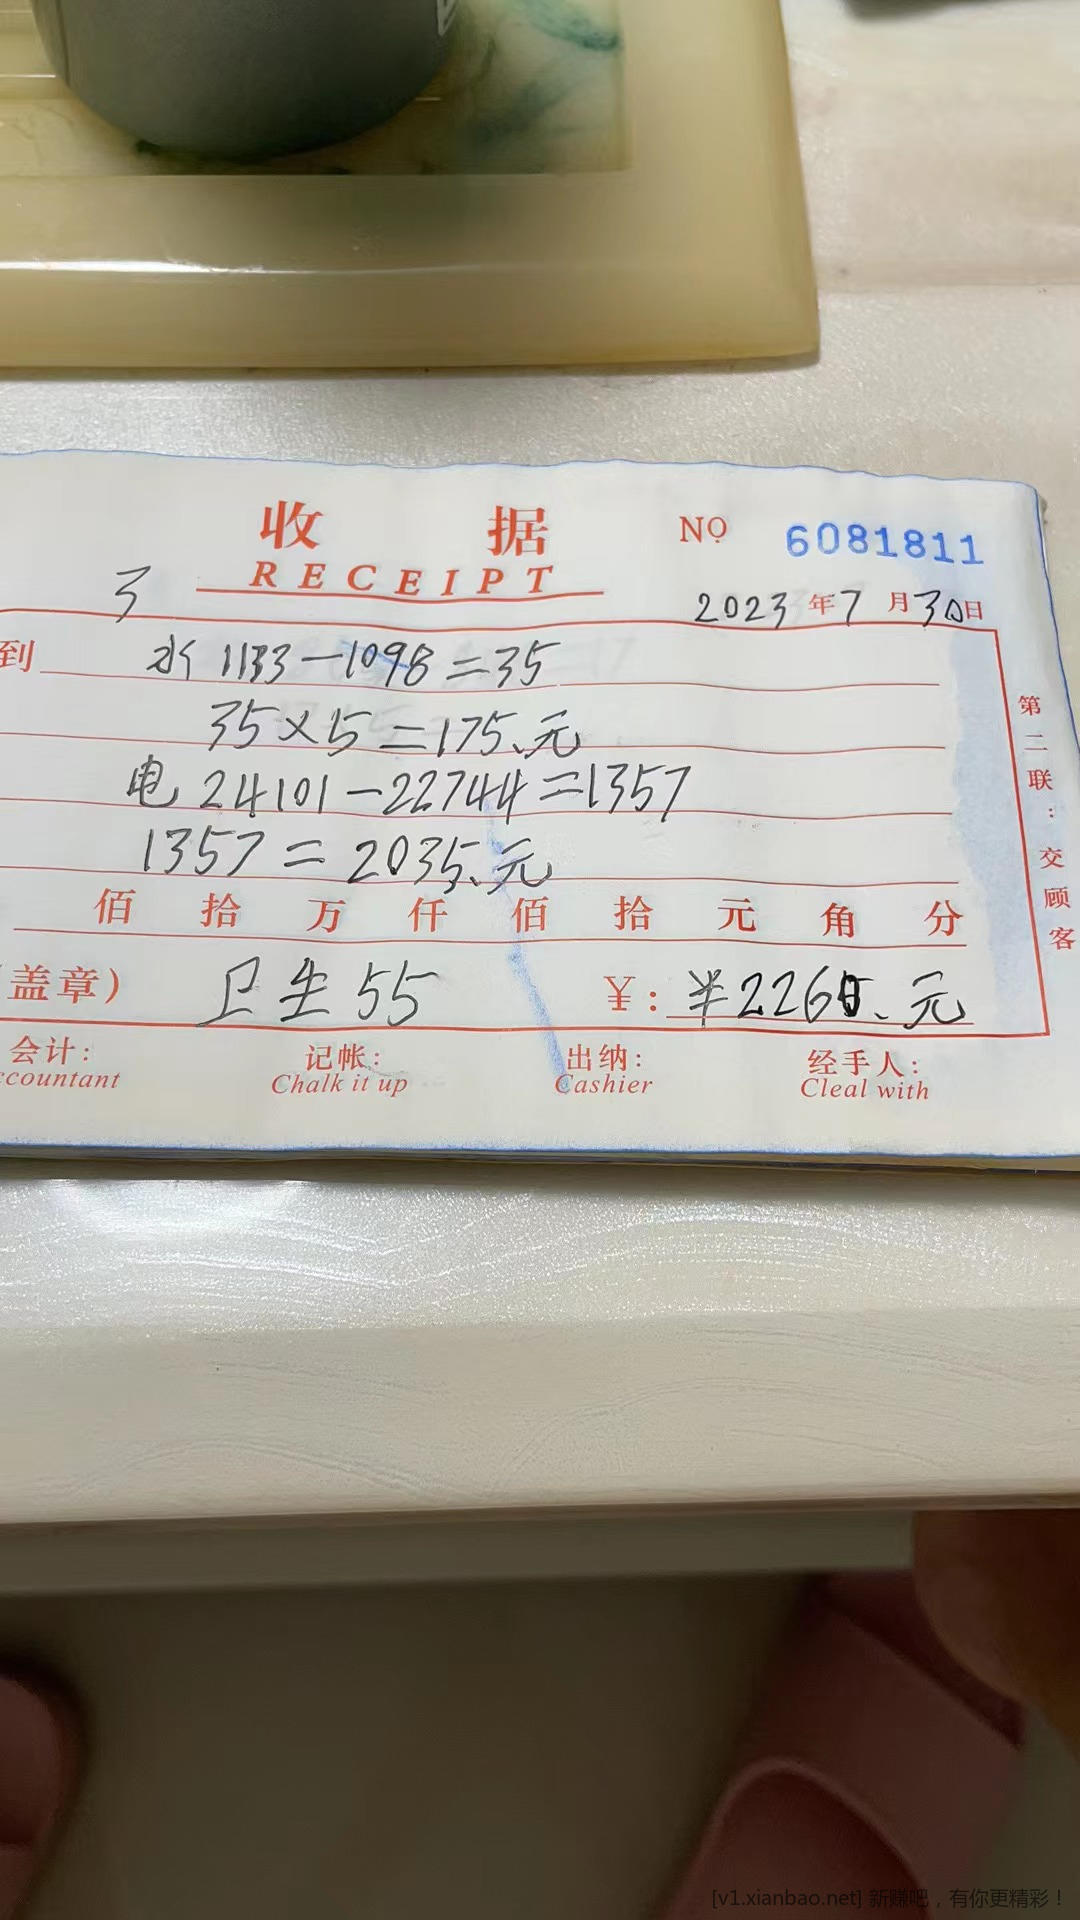 收 据 NO 6081811
RECEIPT
3 2023年7月30日
到 水 1133-1098=35
35×5=175、元
电 24101-22744=1357
1357=2035、元
佰 拾 万 仟 佰 拾 元 角 分
盖章) 卫生 55 ¥: 2265、元
会计: 记帐: 出纳: 经手人:
ccountant Chalk it up Cashier Cleal with
第二联:交顾客
[v1.xianbao.net] 新赚吧,有你更精彩!